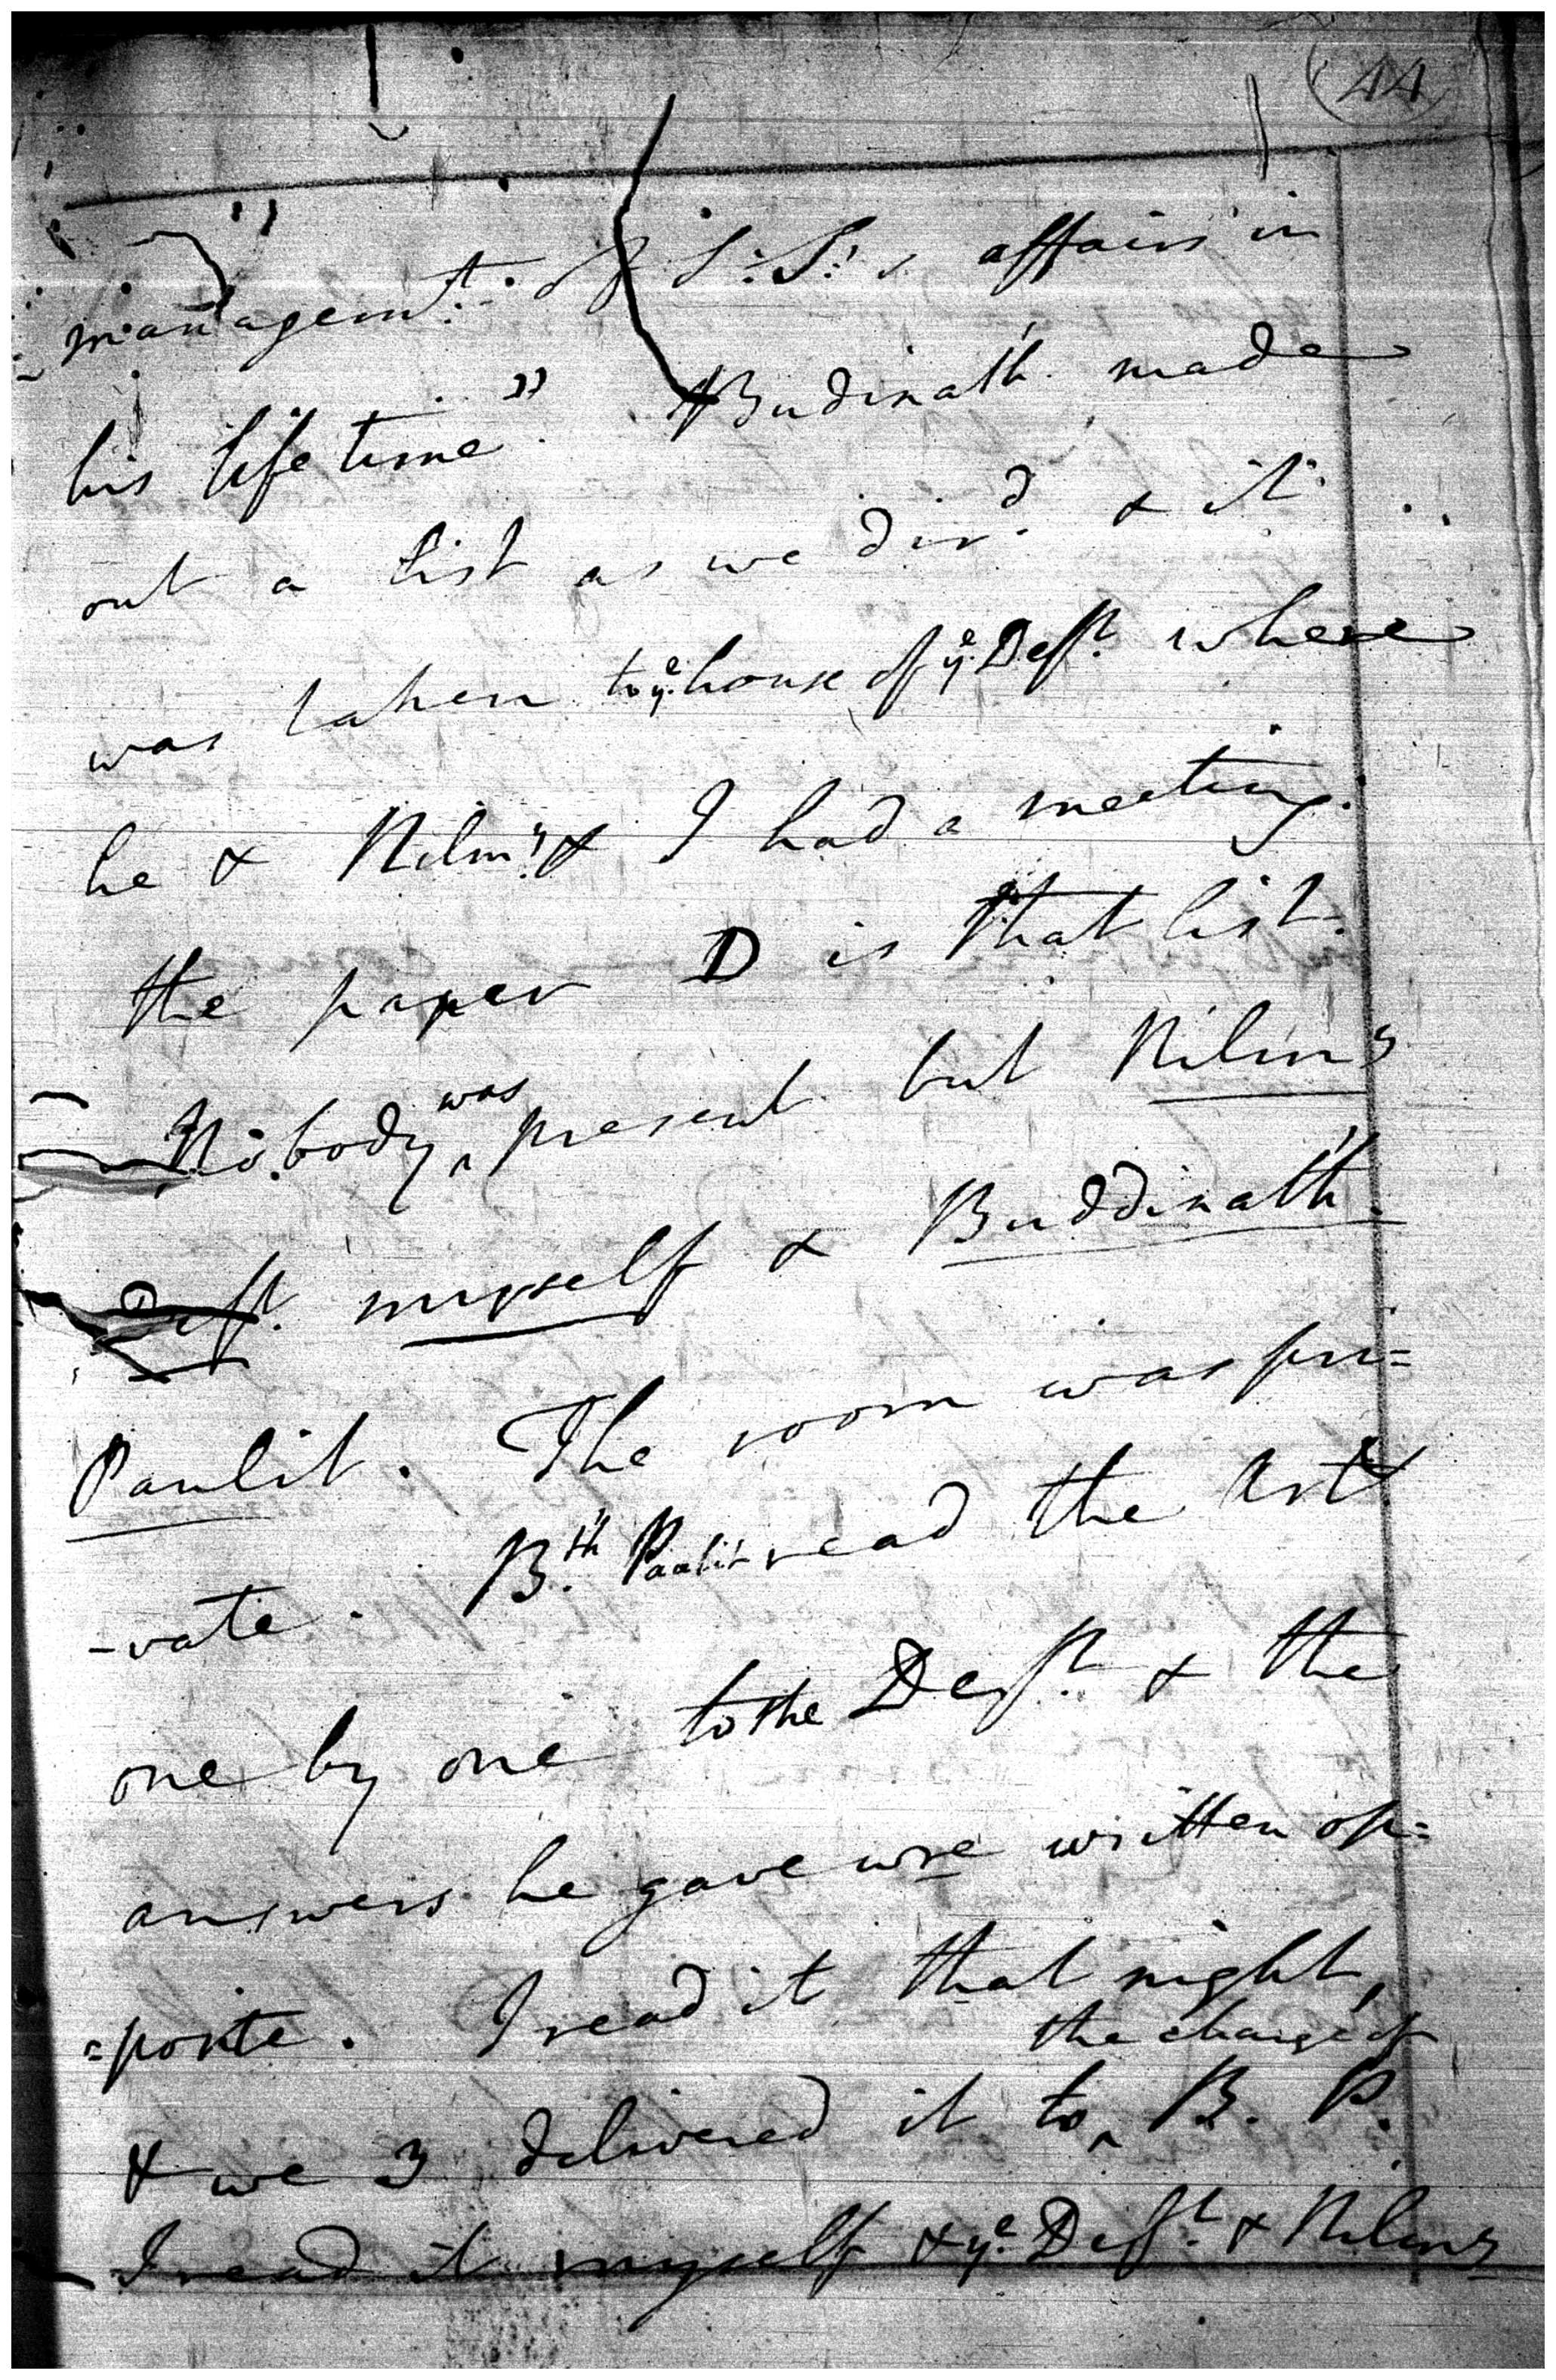 44
managem.t of S:S:'s affairs in
his life time." Budinath made
out a list as we dir.d & it
was taken to y.e house of y.e Def.t where
he & Nilm.y & I had a meeting.
the paper D is that list.
No body was present but Nilm.y
Def.t myself & Buddinath
Paulit. The room was pri=
-vate. B.th Paulit read the Art.s
one by one to the Def.t & the
answers he gave wre written op=
=posite. I read it that night,
& we 3 delivered it to the charge of B. P.
I read it myself & y.e Def.t & Nilm.y